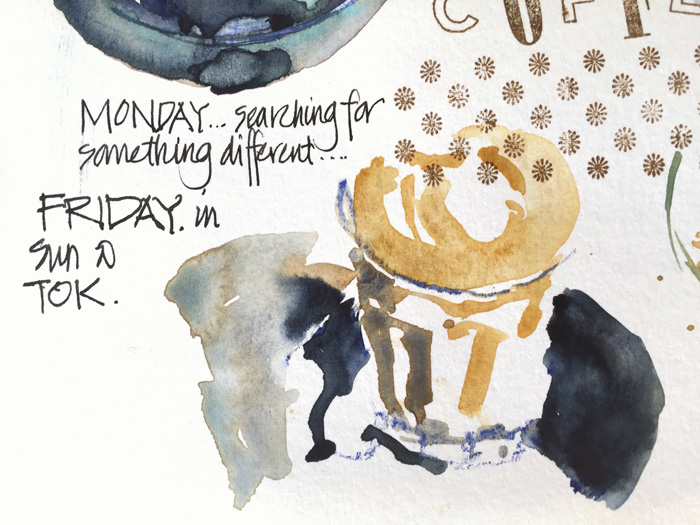 MONDAY... searching for
something different....
FRIDAY. in
sun
TOK.